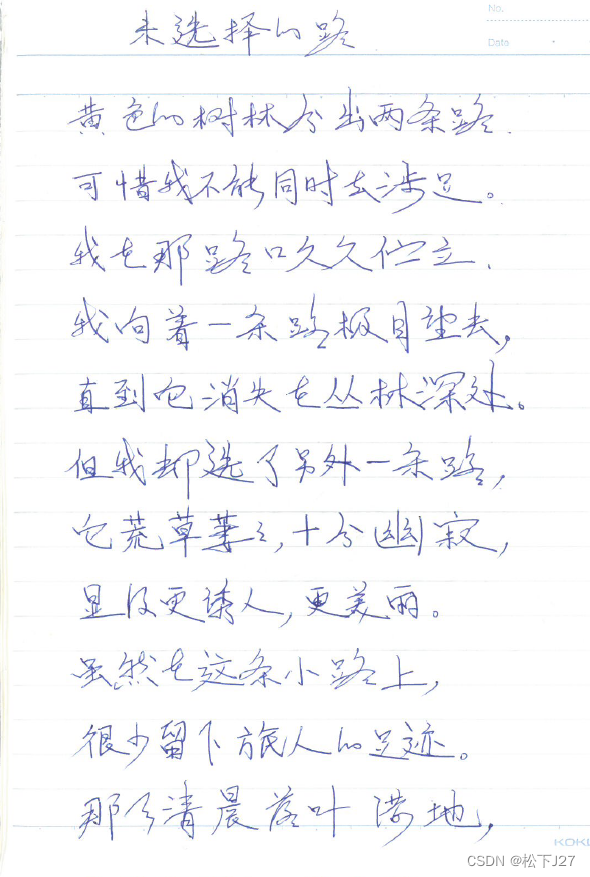 未选择的路
No.
Date
黄色的树林分出两条路.
可惜我不能同时去涉足。
我在那路口久久伫立.
我向着一条路极目望去,
直到它消失在丛林深处。
但我却选了另外一条路,
它荒草萋萋,十分幽寂,
显得更诱人,更美丽。
虽然在这条小路上,
很少留下旅人的足迹。
那天清晨落叶满地,
KOKU
CSDN @松下J27